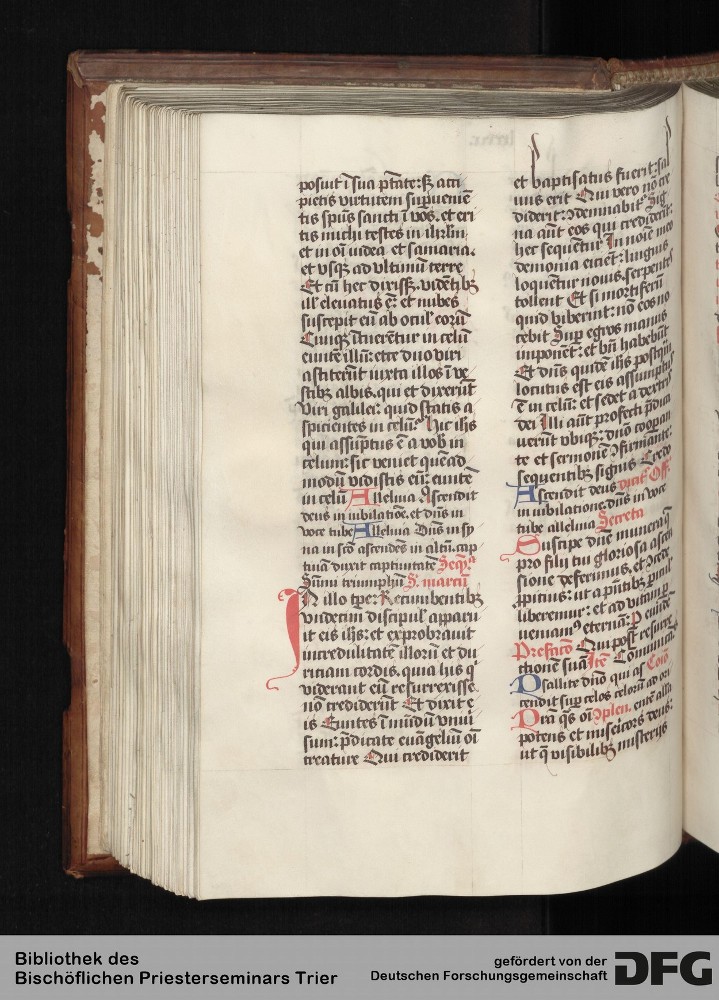 posuit ī sua ptāte: sꝫ acci
pietis virtutem supuenien
tis spūs sancti ī vos. et eri
tis michi testes in ihrl̄m
et in oī iudea et samaria.
et usqꝫ ad ultimū terre
Et cū hec dixissꝫ. vidētibꝫ
ill' elevatus ē: et nubes
suscepit eū ab ocul' eorū
Cumqꝫ ītuerētur in celū
eūnte illū: ecce duo viri
astiterūt iuxta illos ī ve
stibꝫ albis. qui et dixerūt
Viri galilei: quid statis a
spicientes in celū? Hic ihs
qui assūptus ē a vob in
celum: sic veniet quēad
modū vidistis eū: eunte
in celū Alleluia Ascendit
deus in iubilatiōe. et dn̄s in
voce tube Alleluia Dn̄s in sy
na in scō ascendēs in altū. cap
tiuā duxit captiuitatē Seqꝰ
Sūmi triumphū S. marcū
IN illo tꝑe: Recumbentibꝫ
undecim discipul' apparu
it eis ihs: et exprobrauit
incredulitatē illorū et du
riciam cordis. quia hijs q'
viderant eū resurrexisse
nō crediderūt Et dixit e
is Euntes ī mūdū vniu'
sum: p̄dicate euāgeliū oī
creature Qui crediderit
et baptisatus fuerit: sal
uus erit Qui vero nō cre
diderit: ꝯdemnabit' Sig
na aūt eos qui crediderīt:
hec sequētur In noīe meo
demonia eiciēt: linguis
loquētur nouis. serpentes
tollent Et si mortiferū
quid biberint: nō eos no
cebit Sup egros manus
imponēt: et bn̄ habebūt
Et dn̄s quidē ihs postqū
locutus est eis assumptus
ē in celū: et sedet a dextris
dei Illi aūt profecti p̄dica
uerūt ubiqꝫ: dn̄o cooperan
te et sermonē ꝯfirmante.
sequentibꝫ signis Credo
Ascendit deus vicit' Off.
in iubilatione. dn̄s in voce
tube alleluia Secreta
Suscipe dn̄e munera q̄
pro filij tui gloriosa ascen
sione deferimus. et ꝯcede
ꝓpitius: ut a p̄ntibꝫ pericul'
liberemur: et ad vitam ꝑ
ueniamꝰ eternā: P eūdē
Prefacō Qui post resurre
ctionē suā Itē Cōmunicā'
Psallite dn̄o qui as Coīo
cendit sup celos celorū ad ori
Dra q̄s oī ꝯplen. entē alla
potens et misericors deus:
ut q̄ visibilibꝫ misterijs
Bibliothek des
Bischöflichen Priesterseminars Trier
gefördert von der
Deutschen Forschungsgemeinschaft DFG